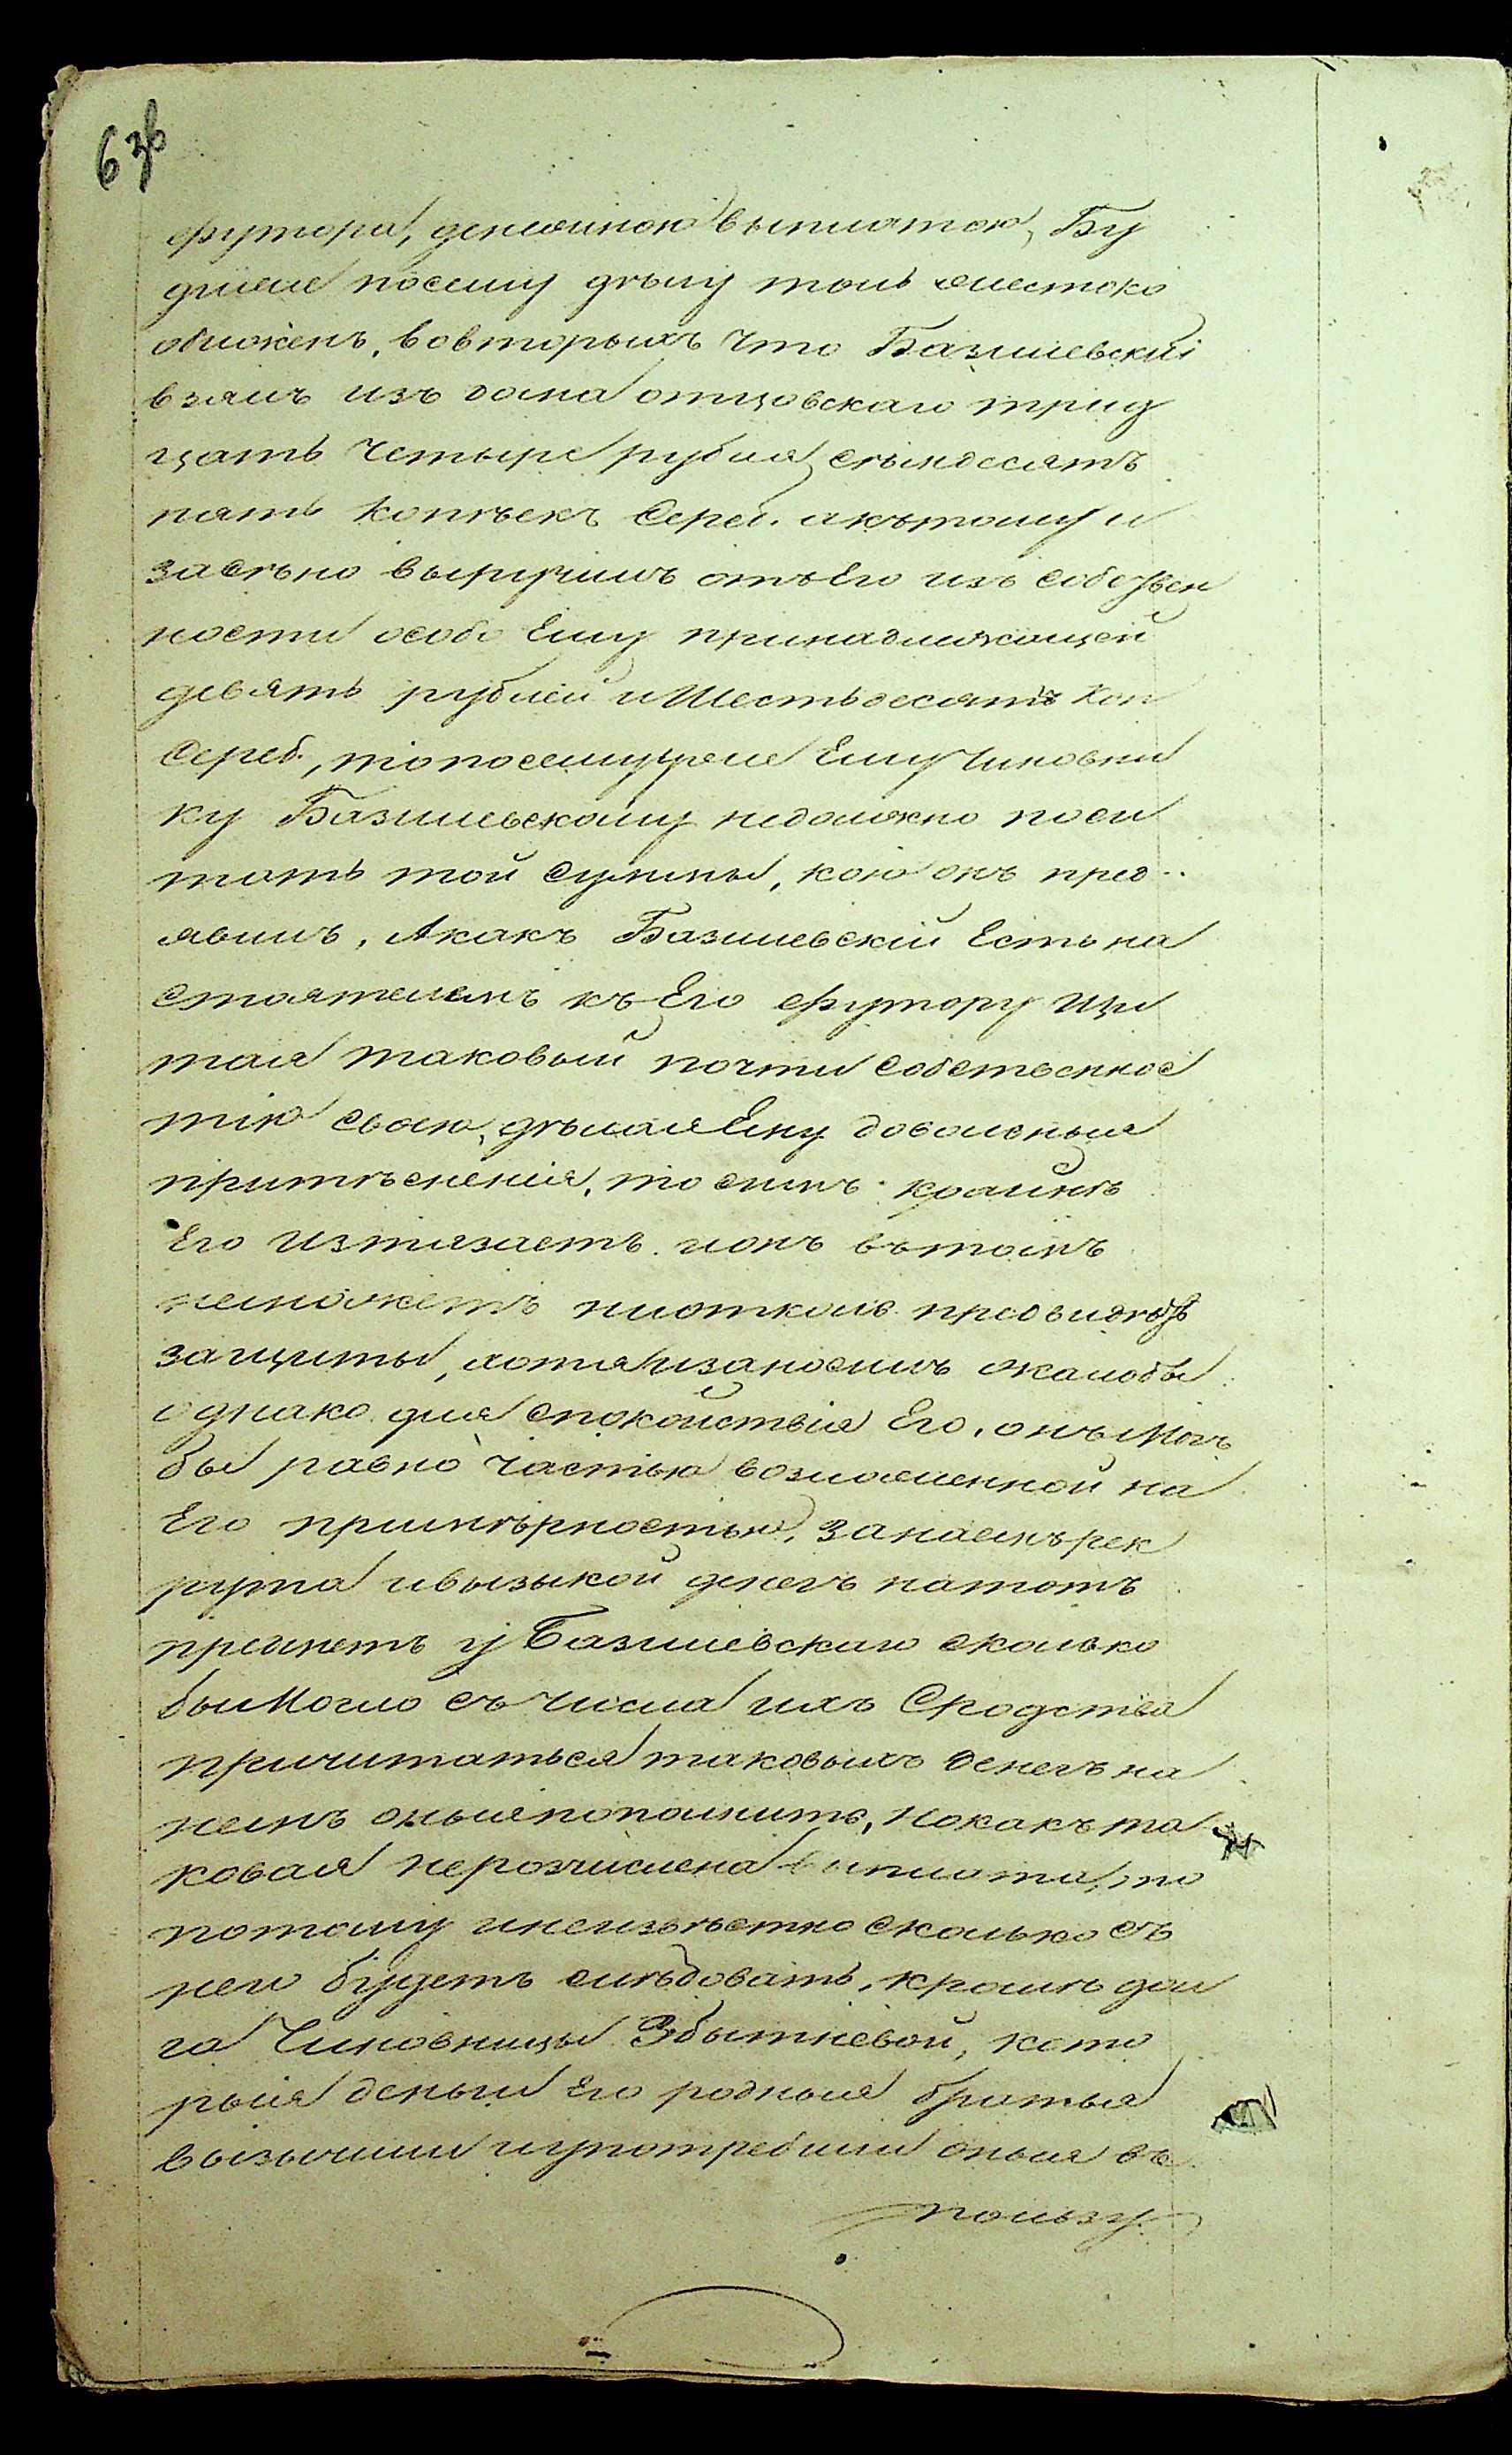 63б
футора, денежною выплатою, Бу
дтеже посему делу толь жестоко
обложенъ, вовторыхъ что Базилевскій
взялъ изъ дома отцовскаго трид
цать четыре рубля, семдесятъ
пять копѣекъ Сереб. акътому и
засѣно выручилъ отъ Его изъ собствен
ности особо Ему принадлежащей
девять рублей и Шестьдесятъ коп
Сереб., то посемууже Ему Чиновни
ку Базилевскому недолжно поси
тать той Суммы, кою онъ пред
явилъ, Акакъ Базилевскій Есть на
стоятелемъ къ Его футору щи
тая таковый почти собственнос
тію своею, дѣлая Ему довольныя
притѣсненія, то симъ крайнѣ
Его изтязаетъ. ионъ вътомъ
неможетъ ниотколь предвидѣть
защиты, хотя изаносилъ жалобы
однако для спокойствія Его, онъ Могъ
бы равно частью возложенной на
Его примѣрностью, занаемъ рек
рута ивызыкой денегъ натотъ
предметъ у Базилевскаго сколько
бы Могло съ числа ихъ Сродства
причитаться таковыхъ денегъ на
немъ оныя пополнить, нокакъ та
ковая нерозчислена выплата, то
потому инеизвѣстно сколько съ
него будетъ слѣдовать, кромѣ дол
га Чиновницы Збытневой, кото
рыя деньги Его родныя братья
вызычили иупотребили оныя въ
пользу